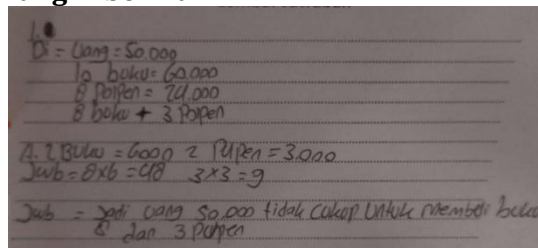 1.
Di = Uang = 50.000
10 buku = 60.000
8 Polpen = 24.000
8 boku + 3 Polpen
A. 1 Buku = 6000 2 Pulpen = 3.000
Jwb = 8x6 = 48 3x3 = 9
Jwb = Jadi uang 50.000 tidak cukup untuk membeli buku
8 dan 3 pulpen